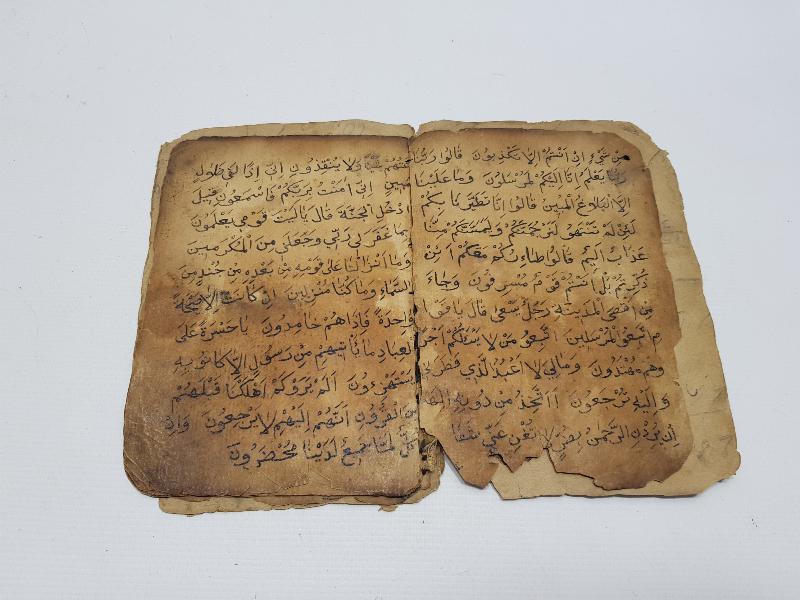 مِنْ شَيْءٍ اِنْ اَنْتُمْ اِلَّا تَكْذِبُونَ قَالُوا رَبُّنَا
يَعْلَمُ اِنَّا اِلَيْكُمْ لَمُرْسَلُونَ وَمَا عَلَيْنَا
اِلَّا الْبَلَاغُ الْمُبِينُ قَالُوا اِنَّا تَطَيَّرْنَا بِكُمْ
لَئِنْ لَمْ تَنْتَهُوا لَنَرْجُمَنَّكُمْ وَلَيَمَسَّنَّكُمْ مِنَّا
عَذَابٌ اَلِيمٌ قَالُوا طَائِرُكُمْ مَعَكُمْ اَئِنْ
ذُكِّرْتُمْ بَلْ اَنْتُمْ قَوْمٌ مُسْرِفُونَ وَجَاءَ
مِنْ اَقْصَى الْمَدِينَةِ رَجُلٌ يَسْعَى قَالَ يَا قَوْمِ
اتَّبِعُوا الْمُرْسَلِينَ اتَّبِعُوا مَنْ لَا يَسْئَلُكُمْ اَجْرًا
وَهُمْ مُهْتَدُونَ وَمَالِيَ لَا اَعْبُدُ الَّذِي فَطَرَنِي
وَاِلَيْهِ تُرْجَعُونَ اَاَتَّخِذُ مِنْ دُونِهِ
اِنْ يُرِدْنِ الرَّحْمٰنُ بِضُرٍّ لَا تُغْنِ عَنِّي شَفَا
عَتُهُمْ شَيْئًا وَلَا يُنْقِذُونِ اِنِّي اِذًا لَفِي ضَلَالٍ
مُبِينٍ اِنِّي اٰمَنْتُ بِرَبِّكُمْ فَاسْمَعُونِ قِيلَ
ادْخُلِ الْجَنَّةَ قَالَ يَا لَيْتَ قَوْمِي يَعْلَمُونَ
بِمَا غَفَرَ لِي رَبِّي وَجَعَلَنِي مِنَ الْمُكْرَمِينَ
وَمَا اَنْزَلْنَا عَلَى قَوْمِهِ مِنْ بَعْدِهِ مِنْ جُنْدٍ مِنَ
السَّمَاءِ وَمَا كُنَّا مُنْزِلِينَ اِنْ كَانَتْ اِلَّا صَيْحَةً
وَاحِدَةً فَاِذَا هُمْ خَامِدُونَ يَا حَسْرَةً عَلَى
الْعِبَادِ مَا يَأْتِيهِمْ مِنْ رَسُولٍ اِلَّا كَانُوا بِهِ
يَسْتَهْزِءُونَ اَلَمْ يَرَوْا كَمْ اَهْلَكْنَا قَبْلَهُمْ
مِنَ الْقُرُونِ اَنَّهُمْ اِلَيْهِمْ لَا يَرْجِعُونَ وَاِنْ
كُلٌّ لَمَّا جَمِيعٌ لَدَيْنَا مُحْضَرُونَ